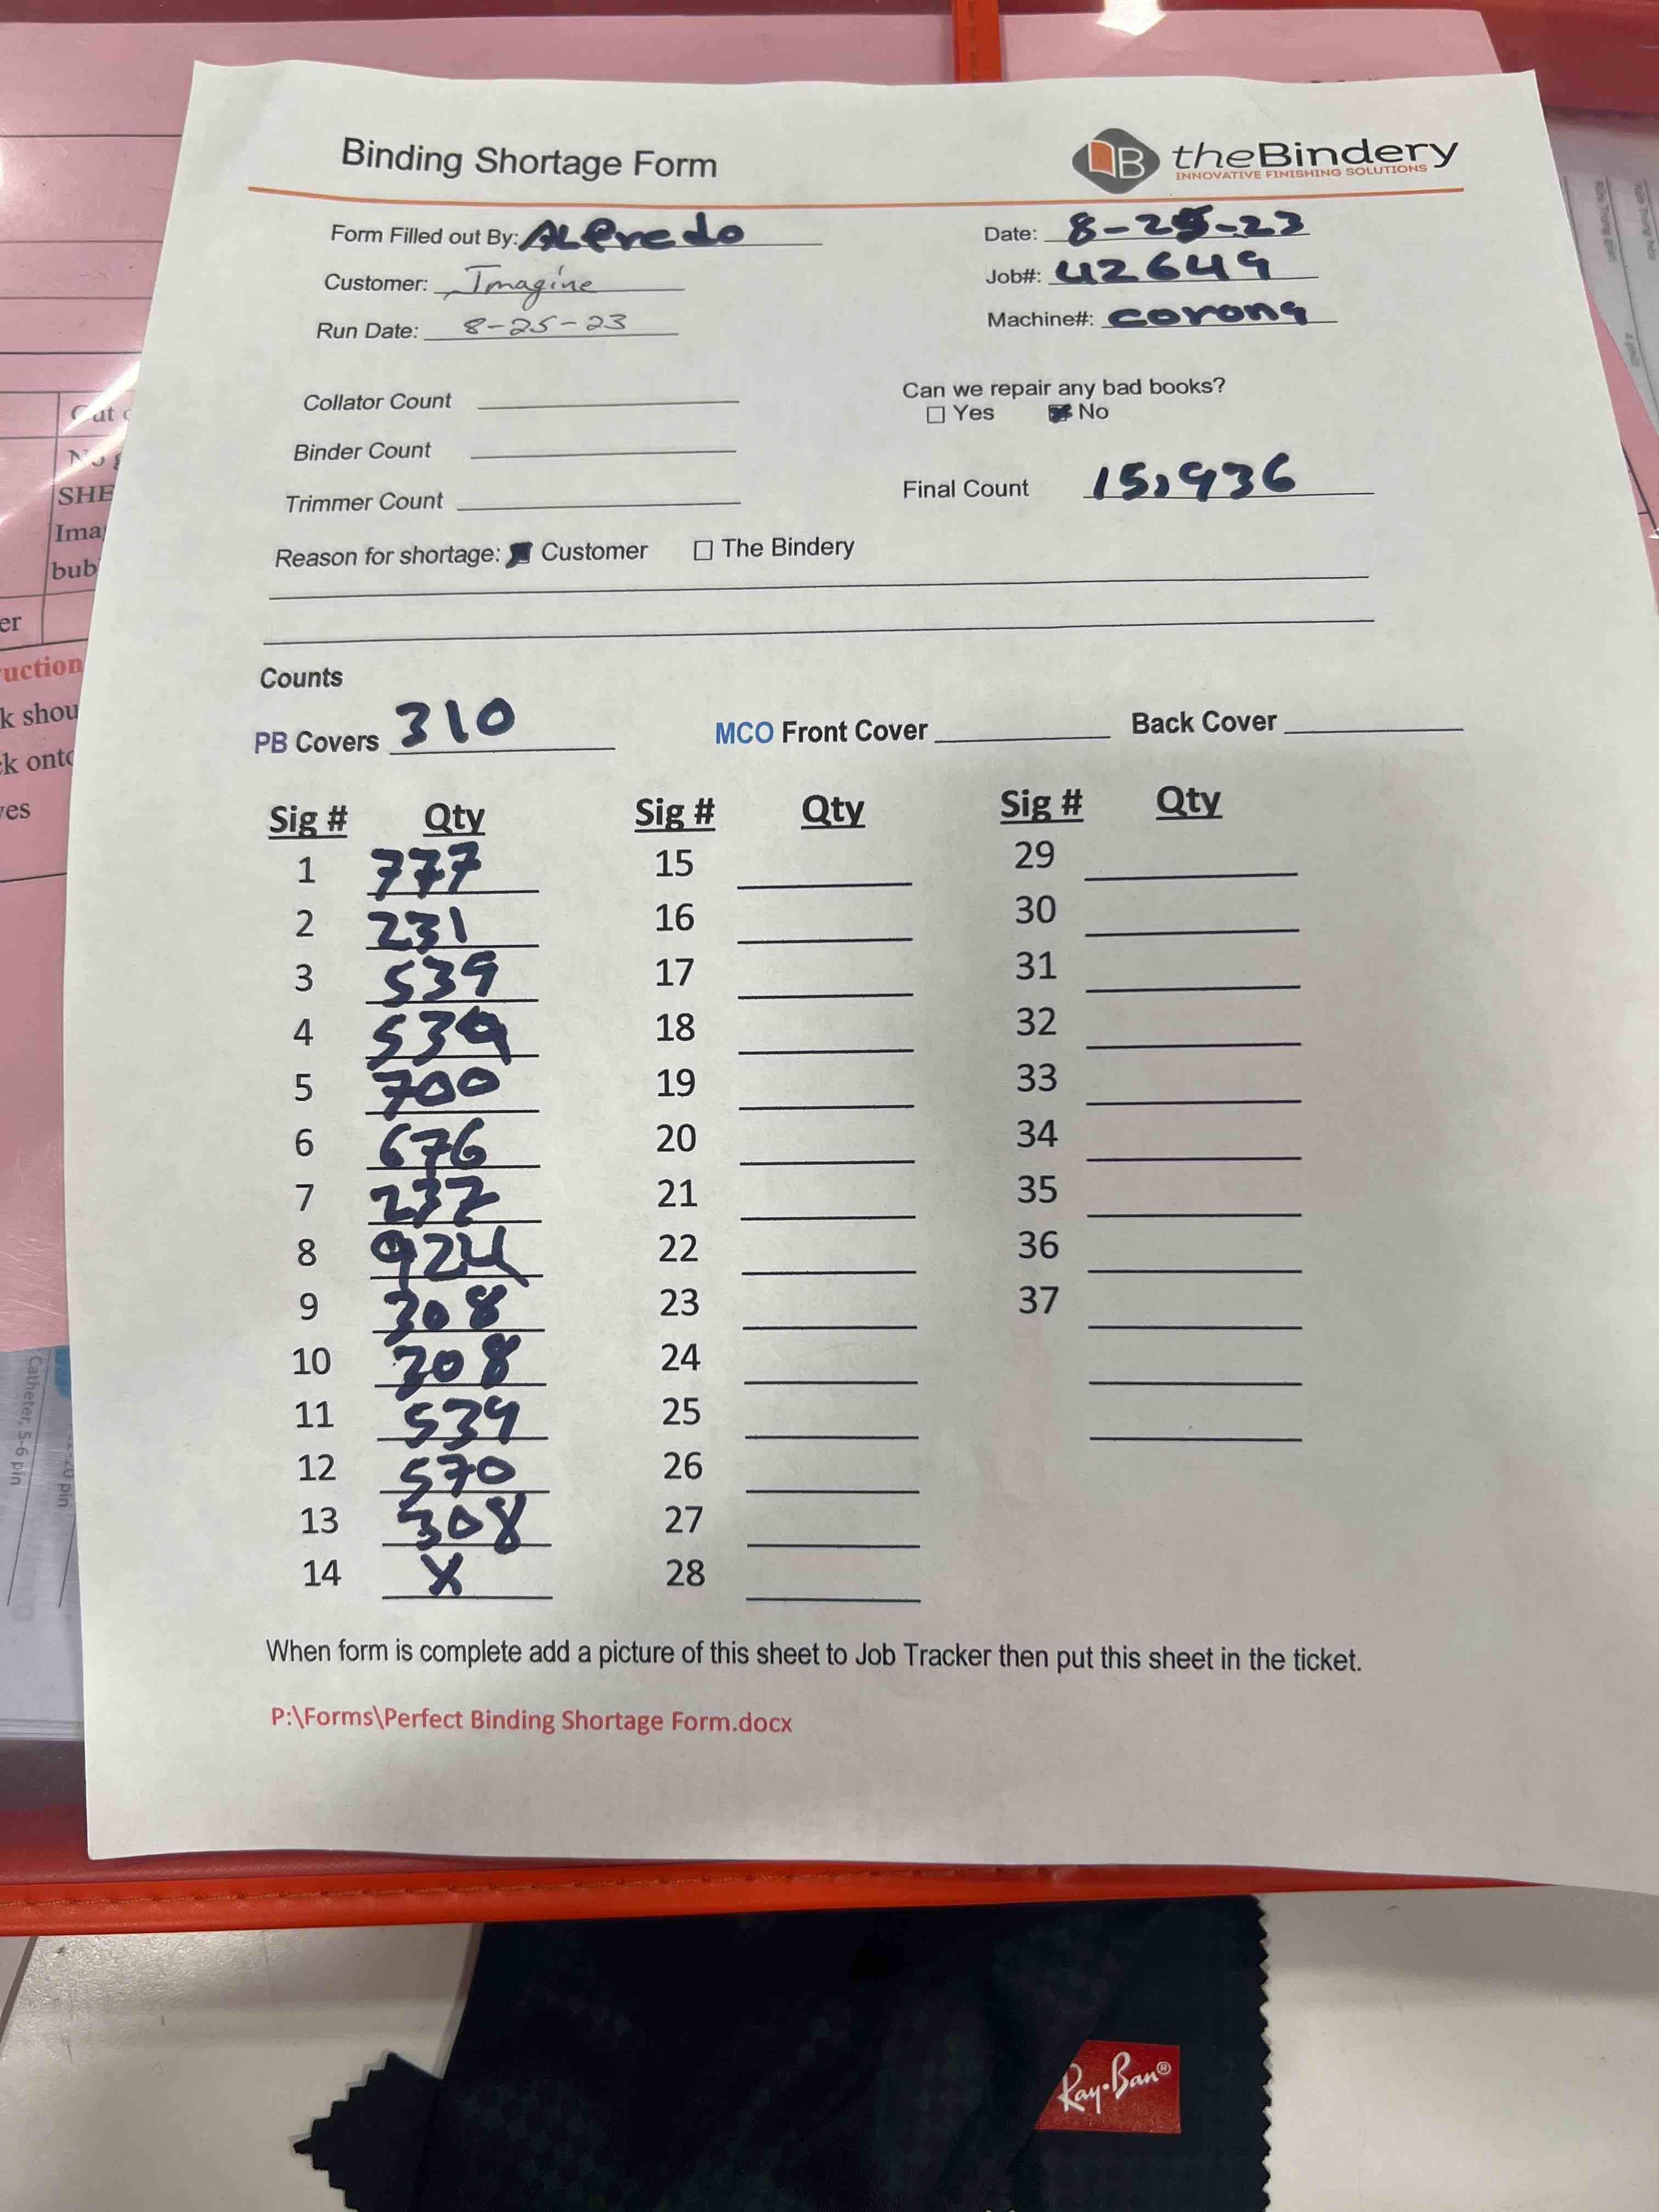 Binding Shortage Form
theBindery
INNOVATIVE FINISHING SOLUTIONS
Form Filled out By: ALfredo
Date: 8-25-23
Customer: Imagine
Job#: 42649
Run Date: 8-25-23
Machine#: corona
Collator Count
Can we repair any bad books?
Yes No
Binder Count
Trimmer Count
Final Count 15,936
Reason for shortage: Customer The Bindery
Counts
PB Covers 310 MCO Front Cover Back Cover
Sig # Qty Sig # Qty Sig # Qty
1 777 15 29
2 231 16 30
3 539 17 31
4 539 18 32
5 700 19 33
6 676 20 34
7 237 21 35
8 924 22 36
9 308 23 37
10 308 24
11 539 25
12 570 26
13 308 27
14 X 28
When form is complete add a picture of this sheet to Job Tracker then put this sheet in the ticket.
P:\Forms\Perfect Binding Shortage Form.docx
SHE
Ima
bub
er
uction
k shou
k onto
es
Catheter, 5-6 pin
Ray-Ban®